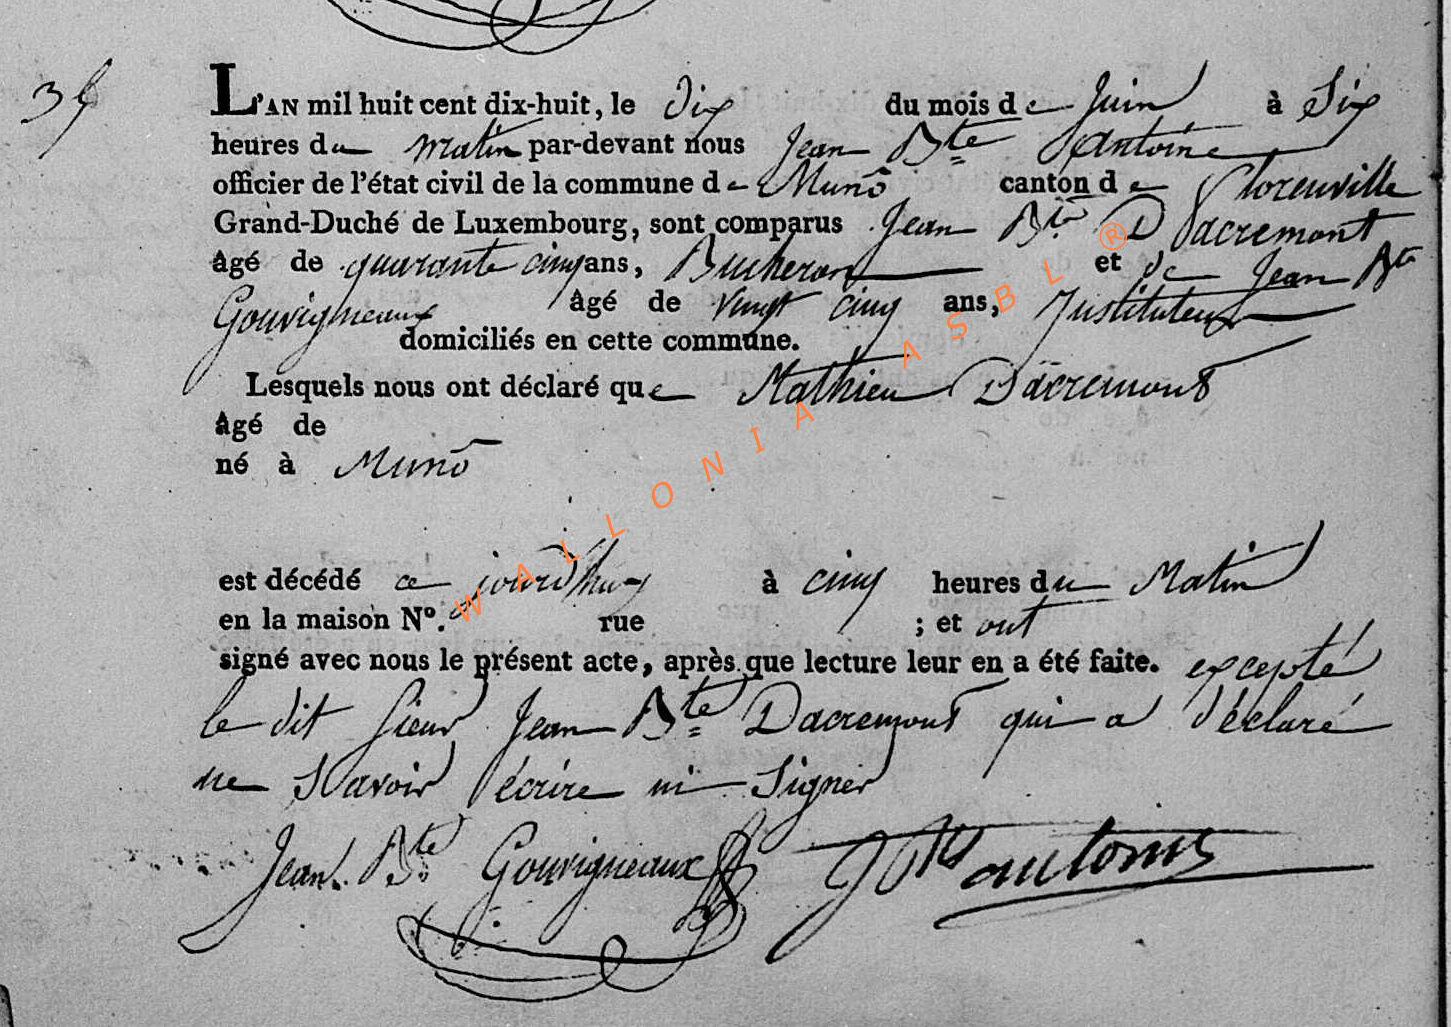 35
L'AN mil huit cent dix-huit, le dix du mois de Juin à Six
heures du matin par-devant nous Jean Bte Antoine
officier de l'état civil de la commune de Munô canton de Florenville
Grand-Duché de Luxembourg, sont comparus Jean Bte Dacremont
âgé de quarante cinq ans, Bucheron et de Jean Bte
Gouvigneaux âgé de vingt cinq ans, Instituteur
domiciliés en cette commune.
Lesquels nous ont déclaré que Mathieu Dacremont
âgé de
né à Munô
est décédé ce jourd'huy à cinq heures du Matin
en la maison No. rue ; et ont
signé avec nous le présent acte, après que lecture leur en a été faite. excepté
le dit Sieur Jean Bte Dacremont qui a déclaré
ne Savoir écrire ni Signer
Jean Bte Gouvigneaux JBte antoine
WALLONIA ASBL ®